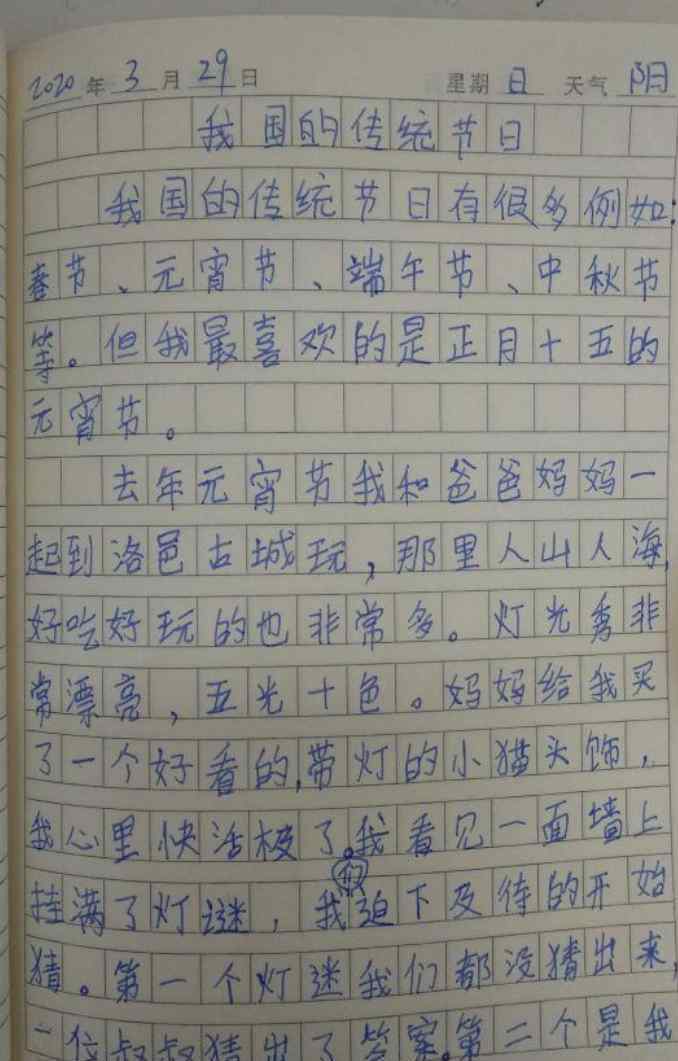 2020年3月29日 星期日 天气阴
我国的传统节日
我国的传统节日有很多例如:
春节、元宵节、端午节、中秋节
等。但我最喜欢的是正月十五的
元宵节。
去年元宵节我和爸爸妈妈一
起到洛邑古城玩,那里人山人海,
好吃好玩的也非常多。灯光秀非
常漂亮,五光十色。妈妈给我买
了一个好看的,带灯的小猫头饰,
我心里快活极了。我看见一面墙上
挂满了灯谜,我们迫下及待的开始
猜。第一个灯迷我们都没猜出来,
一位叔叔猜出了答案。第二个是我